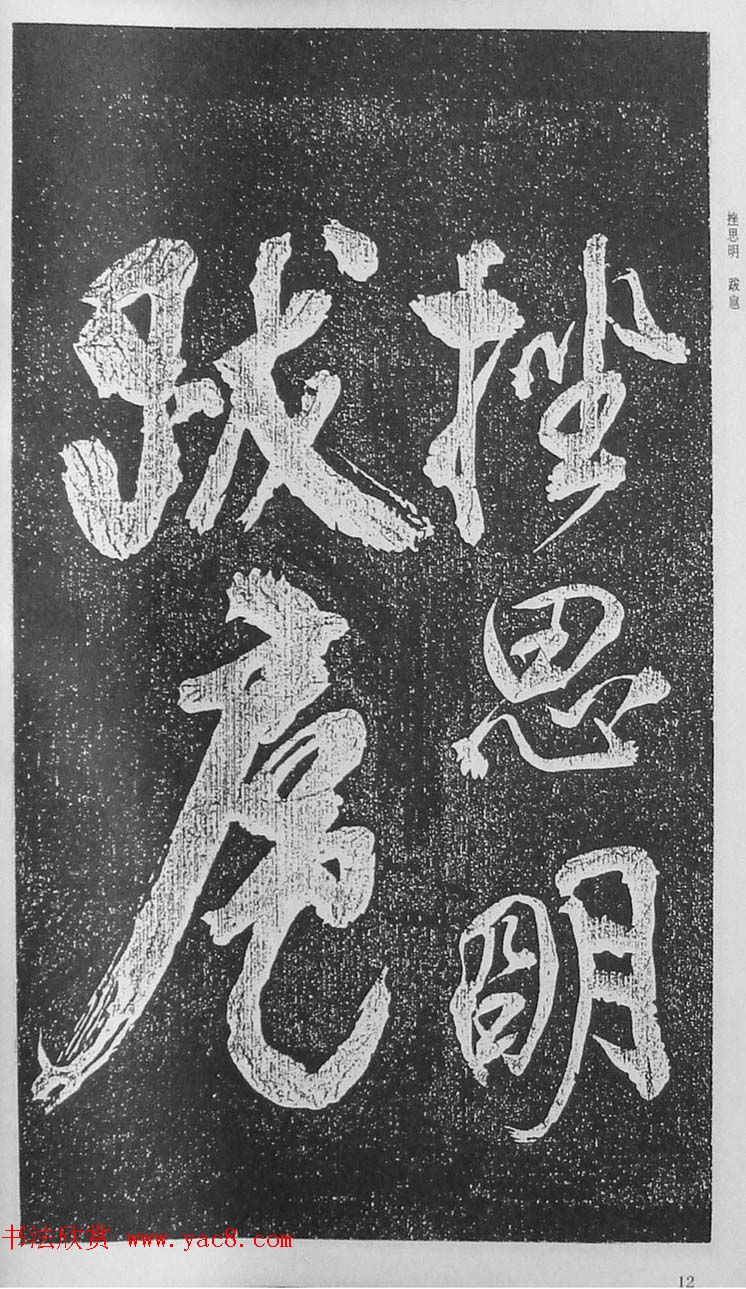 挫思明
跋扈
挫思明 跋扈
书法欣赏 www.yac8.com
12